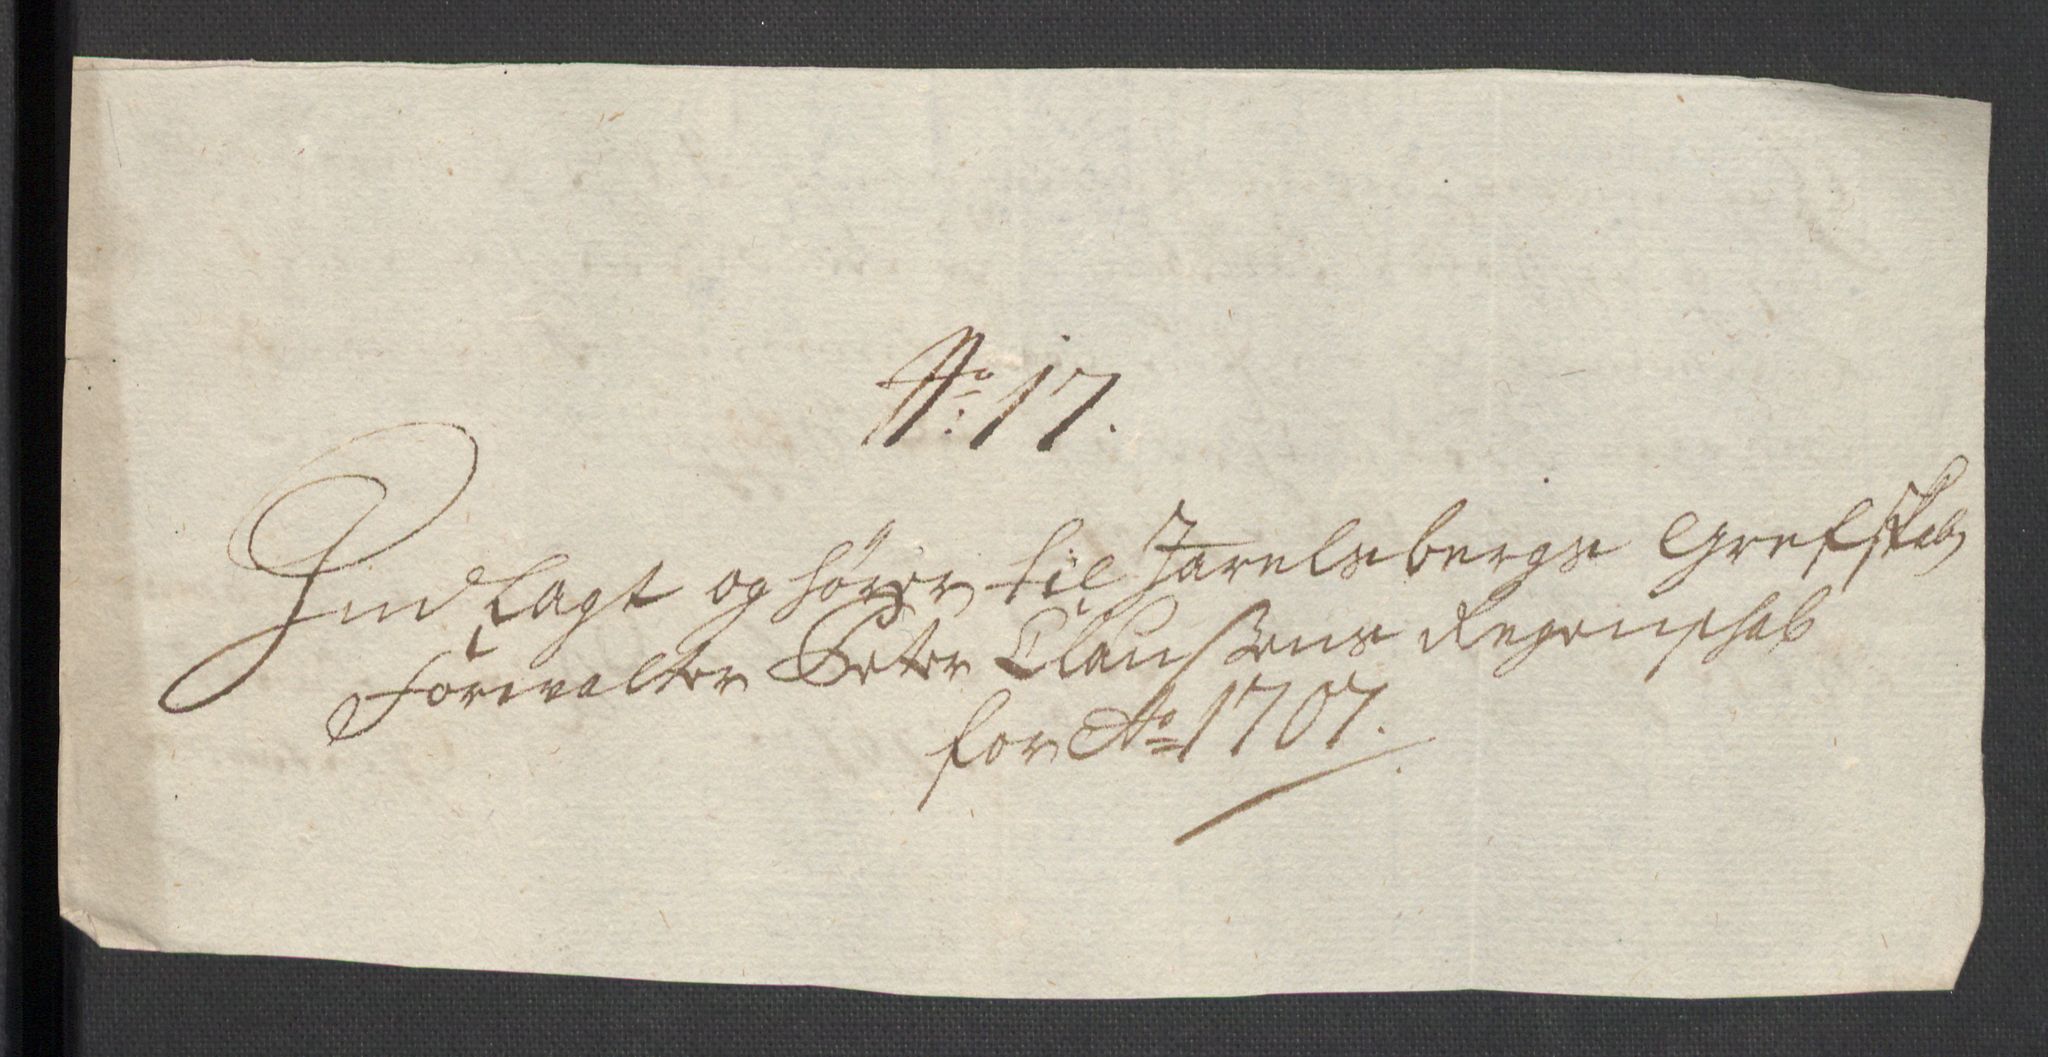 No: 17.
Indlagt og hører til Jarelsbergs Grefskabs
Forvalter Peter Claußens Regenschab
for Ao 1707.